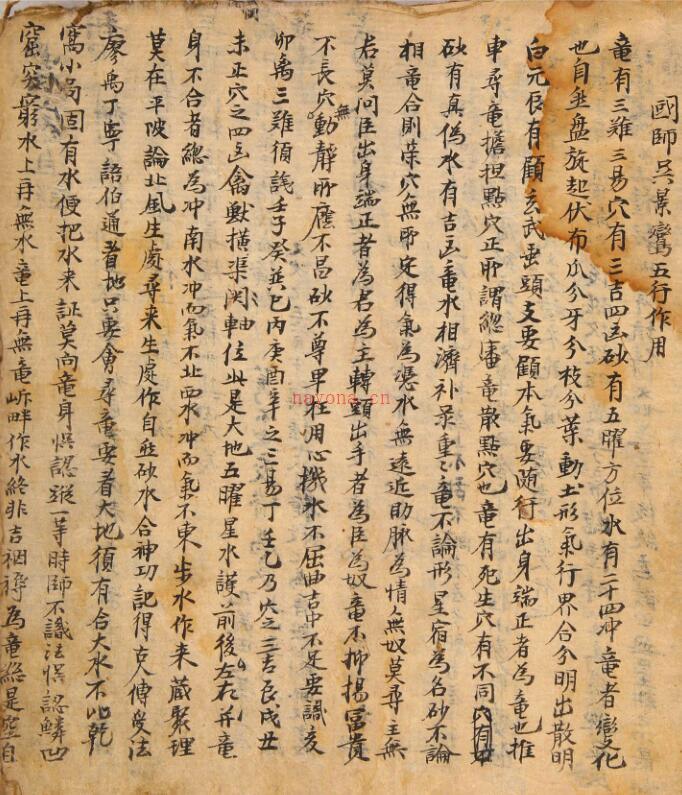 國師吳景鸞五行作用
竜有三難三易穴有三吉四凶砂有五曜方位水有二十四冲竜者變化
也自坐盤旋起伏布爪分牙分枝分葉動土形氣行界合分明出散明
白元辰有顧玄武垂頭支要顧本氣要随行出身端正者為竜也推
車尋竜擔担點穴正所謂緫潘竜散點穴也竜有死生穴有不同穴有
砂有真偽水有吉凶竜水相濟补录重〻竜不論形星宿為名砂不論
相竜合則荣穴無所定得氣為憑水無遠近助脉為情無奴莫尋主無
君莫问臣出身端正者為君為主轉頭出手者為臣為奴竜不抑揚冨貴
不長穴無動靜所應不昌砂不尊卑枉用心機水不屈曲吉中不足要識亥
卯禹三難須識壬子癸并巳内庚酉辛之三易丁生乙乃穴之三吉辰戌丑
未正穴之四凶禽獣横渠関軸位此是大地五曜星水護前後左右并竜
身不合者緫為冲南水冲而氣不北西水冲而氣不東步水作来蔵聚理
莫在平陂論北風生處尋来生處作自坐砂水合神功記得古人傳受法
廖禹丁寧語伯通者地只要會尋竜要者大地須有合大水不此乾
窩小局固有水便把水来証莫向竜身悮認蹤一等時師不識法悮認鱗凹
窟突窮水上再無水竜上再無竜岍畔作水終非吉裀褥為竜緫是空自